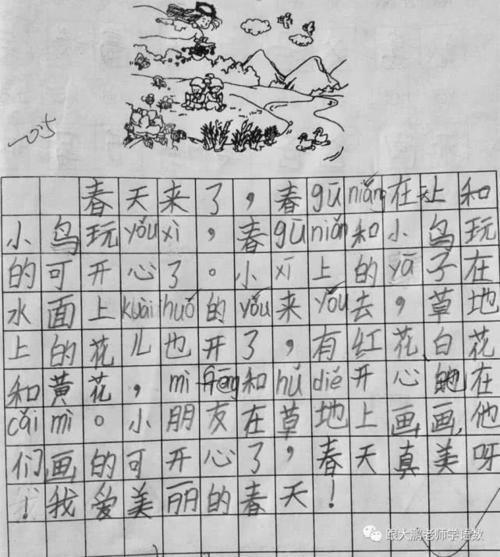 春天来了，春gū niáng在天上和
小鸟玩yóu xì，春gū niáng和小鸟玩
的可开心了。小xī上的yā子在
水面上kuài huó的yóu来yóu去，草地
上的花儿也开了，有红花白花
和黄花，mì fēng和hú dié开心地在
cǎi mì。小朋友在草地上画画，他
们画的可开心了，春天真美呀
！我爱美丽的春天！
跟大鹏老师学语数